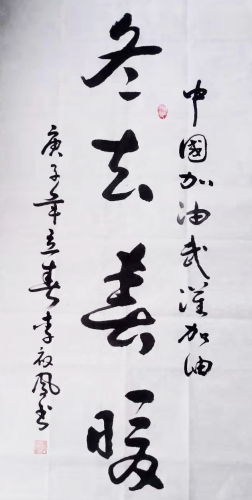 中國加油武漢加油
冬去春暖
庚子年立春李凤书